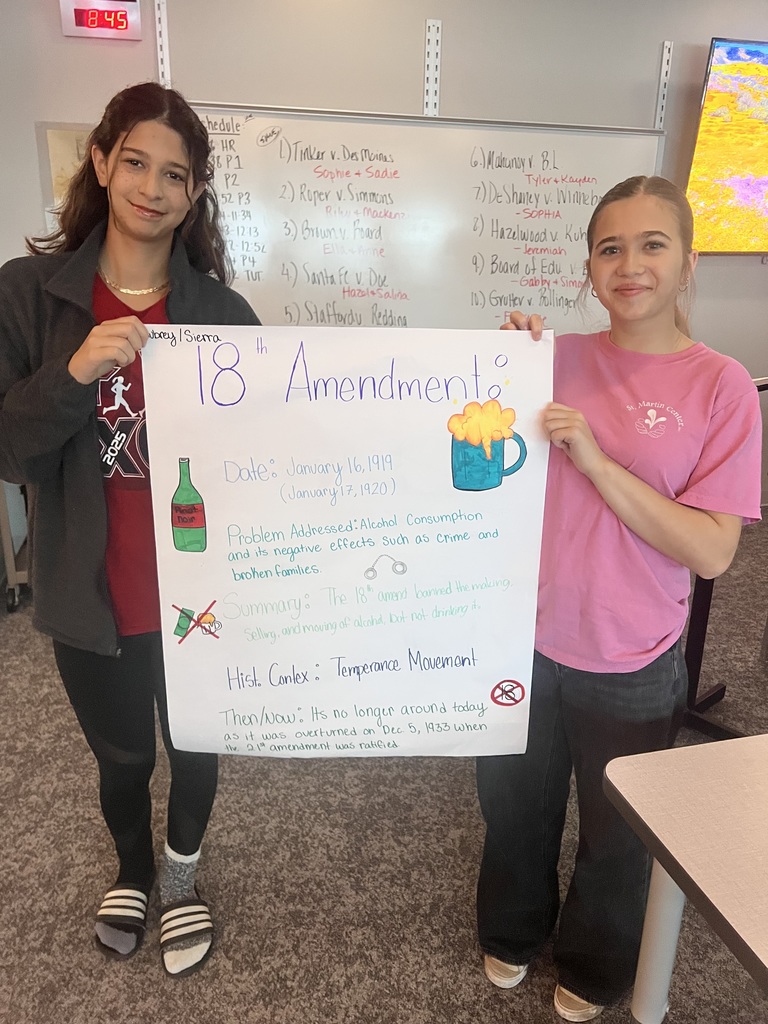 8:45
schedule
HR
P1
P2
P3
11-34
12:13
12:52
P4
TUT
1) Tinker v. Des Moines
Sophie + Sadie
2) Roper v. Simmons
3) Brown v. Board
4) Santa Fe v. Doe
Hazel + Salina
5) Stafford v. Redding
6) Mahanoy v. B.L
Tyler + Kayden
7) DeShaney v. Winneb
- SOPHIA
8) Hazelwood v. Kuh
- Jeremiah
9) Board of Edu v.
- Gabby + Simo
10) Grutter v. Bollinger
brey/Sierra
18th Amendment
Date: January 16, 1919
(January 17, 1920)
Problem Addressed: Alcohol Consumption
and its negative effects such as crime and
broken families.
Summary: The 18th amend banned the making,
Selling, and moving of alcohol, but not drinking it.
Hist. Contex: Temperance Movement
18
Then/Now: Its no longer around today
as it was overturned on Dec. 5, 1933 when
the 21st amendment was ratified
2025
St. Martin Center